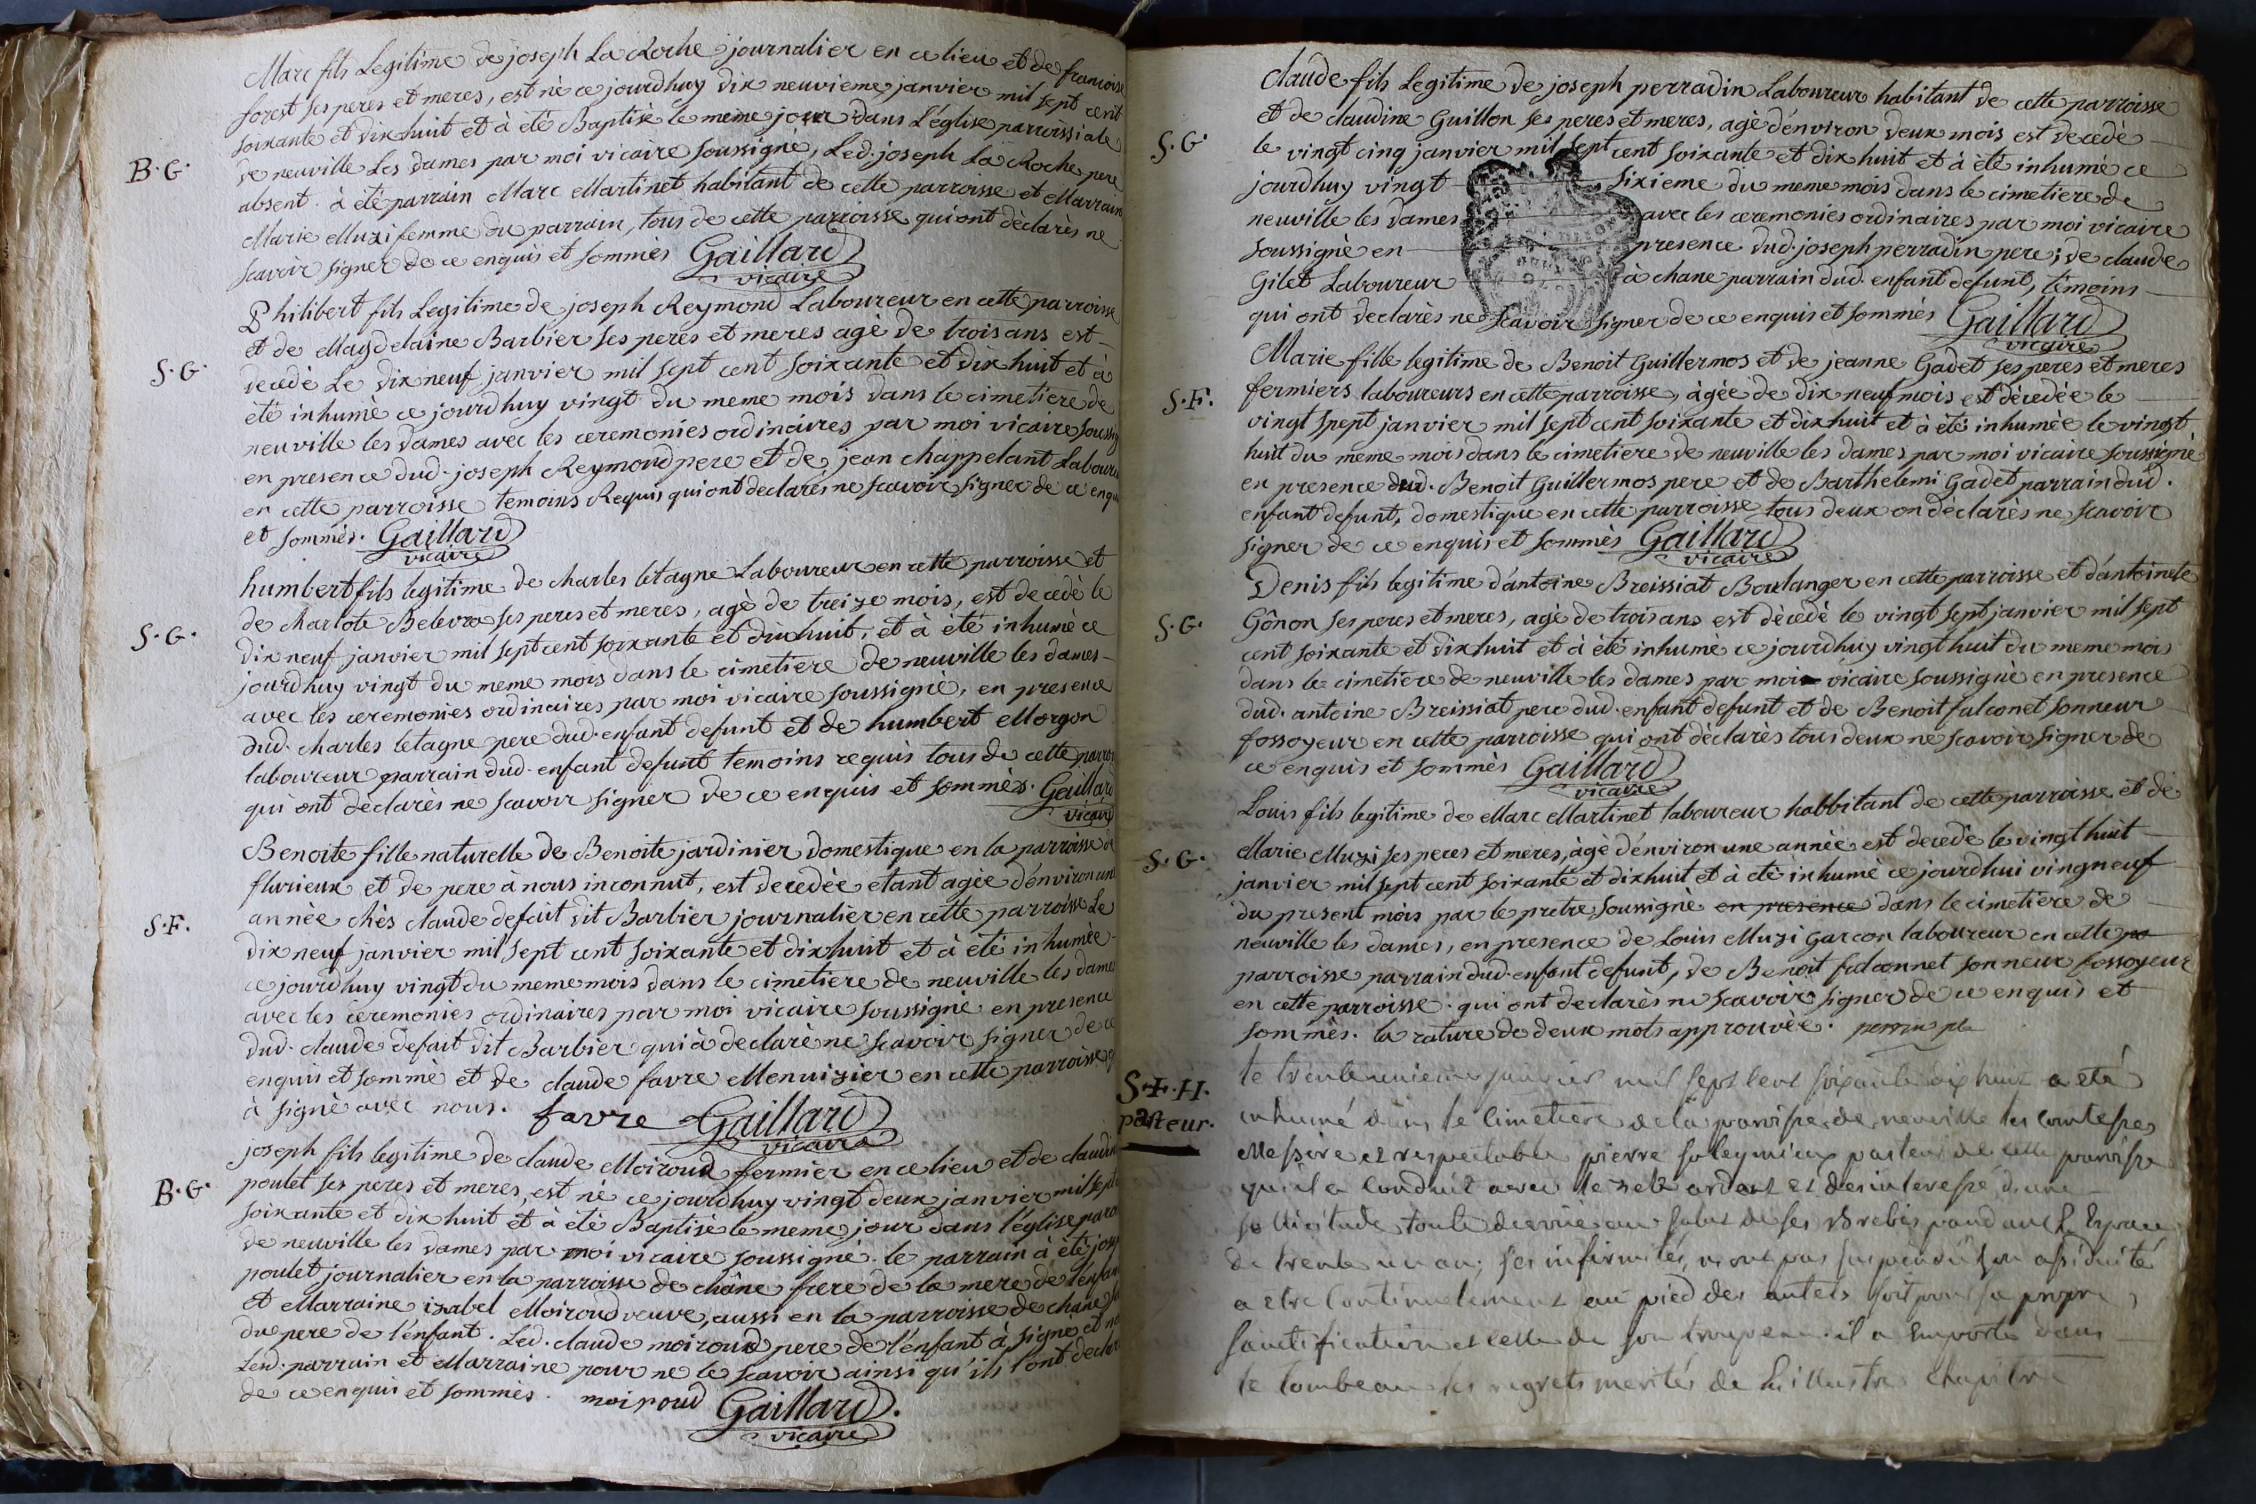 Marc fils Legitime de joseph La Roche journalier en ce lieu et de francoise
forest ses peres et meres, est nè ce jourdhuy dix neuvieme janvier mil sept cent
soixante et dix huit et à étè Baptisè le meme jour dans L'église parroissiale
B·G· de neuville Les dames par moi vicaire soussignè, Led. joseph La Roche pere
absent. à étè parrain Marc Martinet habitant de cette parroisse et Marraine
Marie Muzi femme du parrain, tous de cette parroisse qui ont dèclarès ne
scavoir signer de ce enquis et sommès Gaillard
vicaire
Philibert fils Legitime de joseph Reymond Laboureur en cette parroisse
et de Magdelaine Barbier ses peres et meres agè de trois ans est
S·G· decedè Le dix neuf janvier mil sept cent soixante et dix huit et à
étè inhumè ce jourdhuy vingt du meme mois dans le cimetiere de
neuville les dames avec les ceremonies ordinaires par moi vicaire soussig
en presence dud. joseph Reymond pere et de jean chappelant Laboure
en cette parroisse temoins Requis qui ont declarès ne scavoir signer de ce enqu
et sommès. Gaillard
vicaire
humbert fils legitime de charles letagne Laboureur en cette parroisse et
de charlote Belevra ses peres et meres, agè de treize mois, est decedè le
S·G· dix neuf janvier mil sept cent soixante et dix huit, et à étè inhumè ce
jourdhuy vingt du meme mois dans le cimetiere de neuville les dames
avec les ceremonies ordinaires par moi vicaire soussignè, en presence
dud. charles letagne pere dud. enfant defunt et de humbert Morgon
laboureur parrain dud. enfant defunt temoins requis tous de cette parroi
qui ont dèclarès ne scavoir signer de ce enquis et sommès. Gaillard
vicaire
Benoite fille naturelle de Benoite jardinier domestique en la parroisse de
flurieux et de pere à nous inconnut, est decedèe etant agèe d'environ une
annèe chès claude defait dit Barbier journalier en cette parroisse Le
S·F. dix neuf janvier mil sept cent soixante et dix huit et à étè inhumèe
ce jourdhuy vingt du meme mois dans le cimetiere de neuville les dames
avec les ceremonies ordinaires par moi vicaire soussignè en presence
dud. claude defait dit Barbier qui à declarè ne scavoir signer de ce
enquis et sommè et de claude favre Menuizier en cette parroisse q
à signè avec nous. favre Gaillard
vicaire
joseph fils legitime de claude Moiroud fermier en ce lieu et de claudine
poulet ses peres et meres, est nè ce jourdhuy vingt deux janvier mil sept c
B·G· soixante et dix huit et à étè Baptisè le meme jour dans l'église parro
de neuville les dames par moi vicaire soussignè. le parrain à étè jose
poulet journalier en la parroisse de châne frere de la mere de l'enfan
et Marraine izabel Moiroud veuve, aussi en la parroisse de chane
du pere de l'enfant. Led. claude moiroud pere de l'enfant à signè et no
Lesd. parrain et Marraine pour ne le scavoir ainsi qu'ils l'ont declar
de ce enquis et sommès. moiroud Gaillard.
vicaire
claude fils Legitime de joseph perradin Laboureur habitant de cette parroisse
et de claudine Guillon ses peres et meres, agè d'environ deux mois est decedè
S·G· le vingt cinq janvier mil sept cent soixante et dix huit et à étè inhumè ce
jourdhuy vingt sixieme du meme mois dans le cimetiere de
neuville les dames avec les ceremonies ordinaires par moi vicaire
soussignè en presence dud. joseph perradin pere; de claude
Gilet Laboureur à chane parrain dud. enfant defunt, temoins
qui ont declarès ne scavoir signer de ce enquis et sommès Gaillard
vicaire
Marie fille legitime de Benoit Guillermos et de jeanne Gadet ses peres et meres
S·F. fermiers laboureurs en cette parroisse, àgèe de dix neuf mois est dècedèe le
vingt spept janvier mil sept cent soixante et dix huit et à étè inhumèe le vingt
huit du meme mois dans le cimetiere de neuville les dames par moi vicaire soussignè
en presence dud. Benoit Guillermos pere et de Barthelemi Gadet parrain dud.
enfant defunt, domestique en cette parroisse tous deux on dèclarès ne scavoir
signer de ce enquis et sommès Gaillard
vicaire
Denis fils legitime d'antoine Breissiat Boulanger en cette parroisse et d'antoinete
S·G· Gônon ses peres et meres, agè de trois ans est dècedè le vingt sept janvier mil sept
cent soixante et dix huit et à étè inhumè ce jourdhuy vingt huit du meme mois
dans le cimetiere de neuville les dames par moi vicaire soussignè en presence
dud. antoine Breissiat pere dud. enfant defunt et de Benoit falconet sonneur
fossoyeur en cette parroisse qui ont dèclarès tous deux ne scavoir signer de
ce enquis et sommès Gaillard
vicaire
Louis fils legitime de Marc Martinet laboureur habbitant de cette parroisse et de
S·G· Marie Muzi ses peres et meres, àgè d'environ une annèe est decedè le vingt huit
janvier mil sept cent soixante et dix huit et à étè inhumè ce jourdhui vingneuf
du present mois par le pretre soussignè en presence dans le cimetiere de
neuville les dames, en presence de Louis Muzi Garcon laboureur en cette pa
parroisse parrain dud. enfant defunt, de Benoit falconnet sonneur fossoyeur
en cette parroisse. qui ont declarès ne scavoir signer de ce enquis et
sommès. la rature de deux mots approuvèe.
S·F·H. le trente unieme janvier mil sept cent soixante dix huit a eté
pasteur. inhumé dans le cimetiere de la paroisse de neuville les comtesses
Messire et respectable pierre soleymieux pasteur de cette paroisse
qu'il a conduit avec le zele ardent et desinteressé d'une
sollicitude toute devouée au salut de ses brebis pandant L'Espace
de trente un an; ses infirmités, n'ont pas suspendu son assiduité
a etre continuelement au pied des autels soit pour sa propre
sanctification et celle de son troupeau. il a Emporté dans
le tombeau les regrets merités de L'illustre chapitre